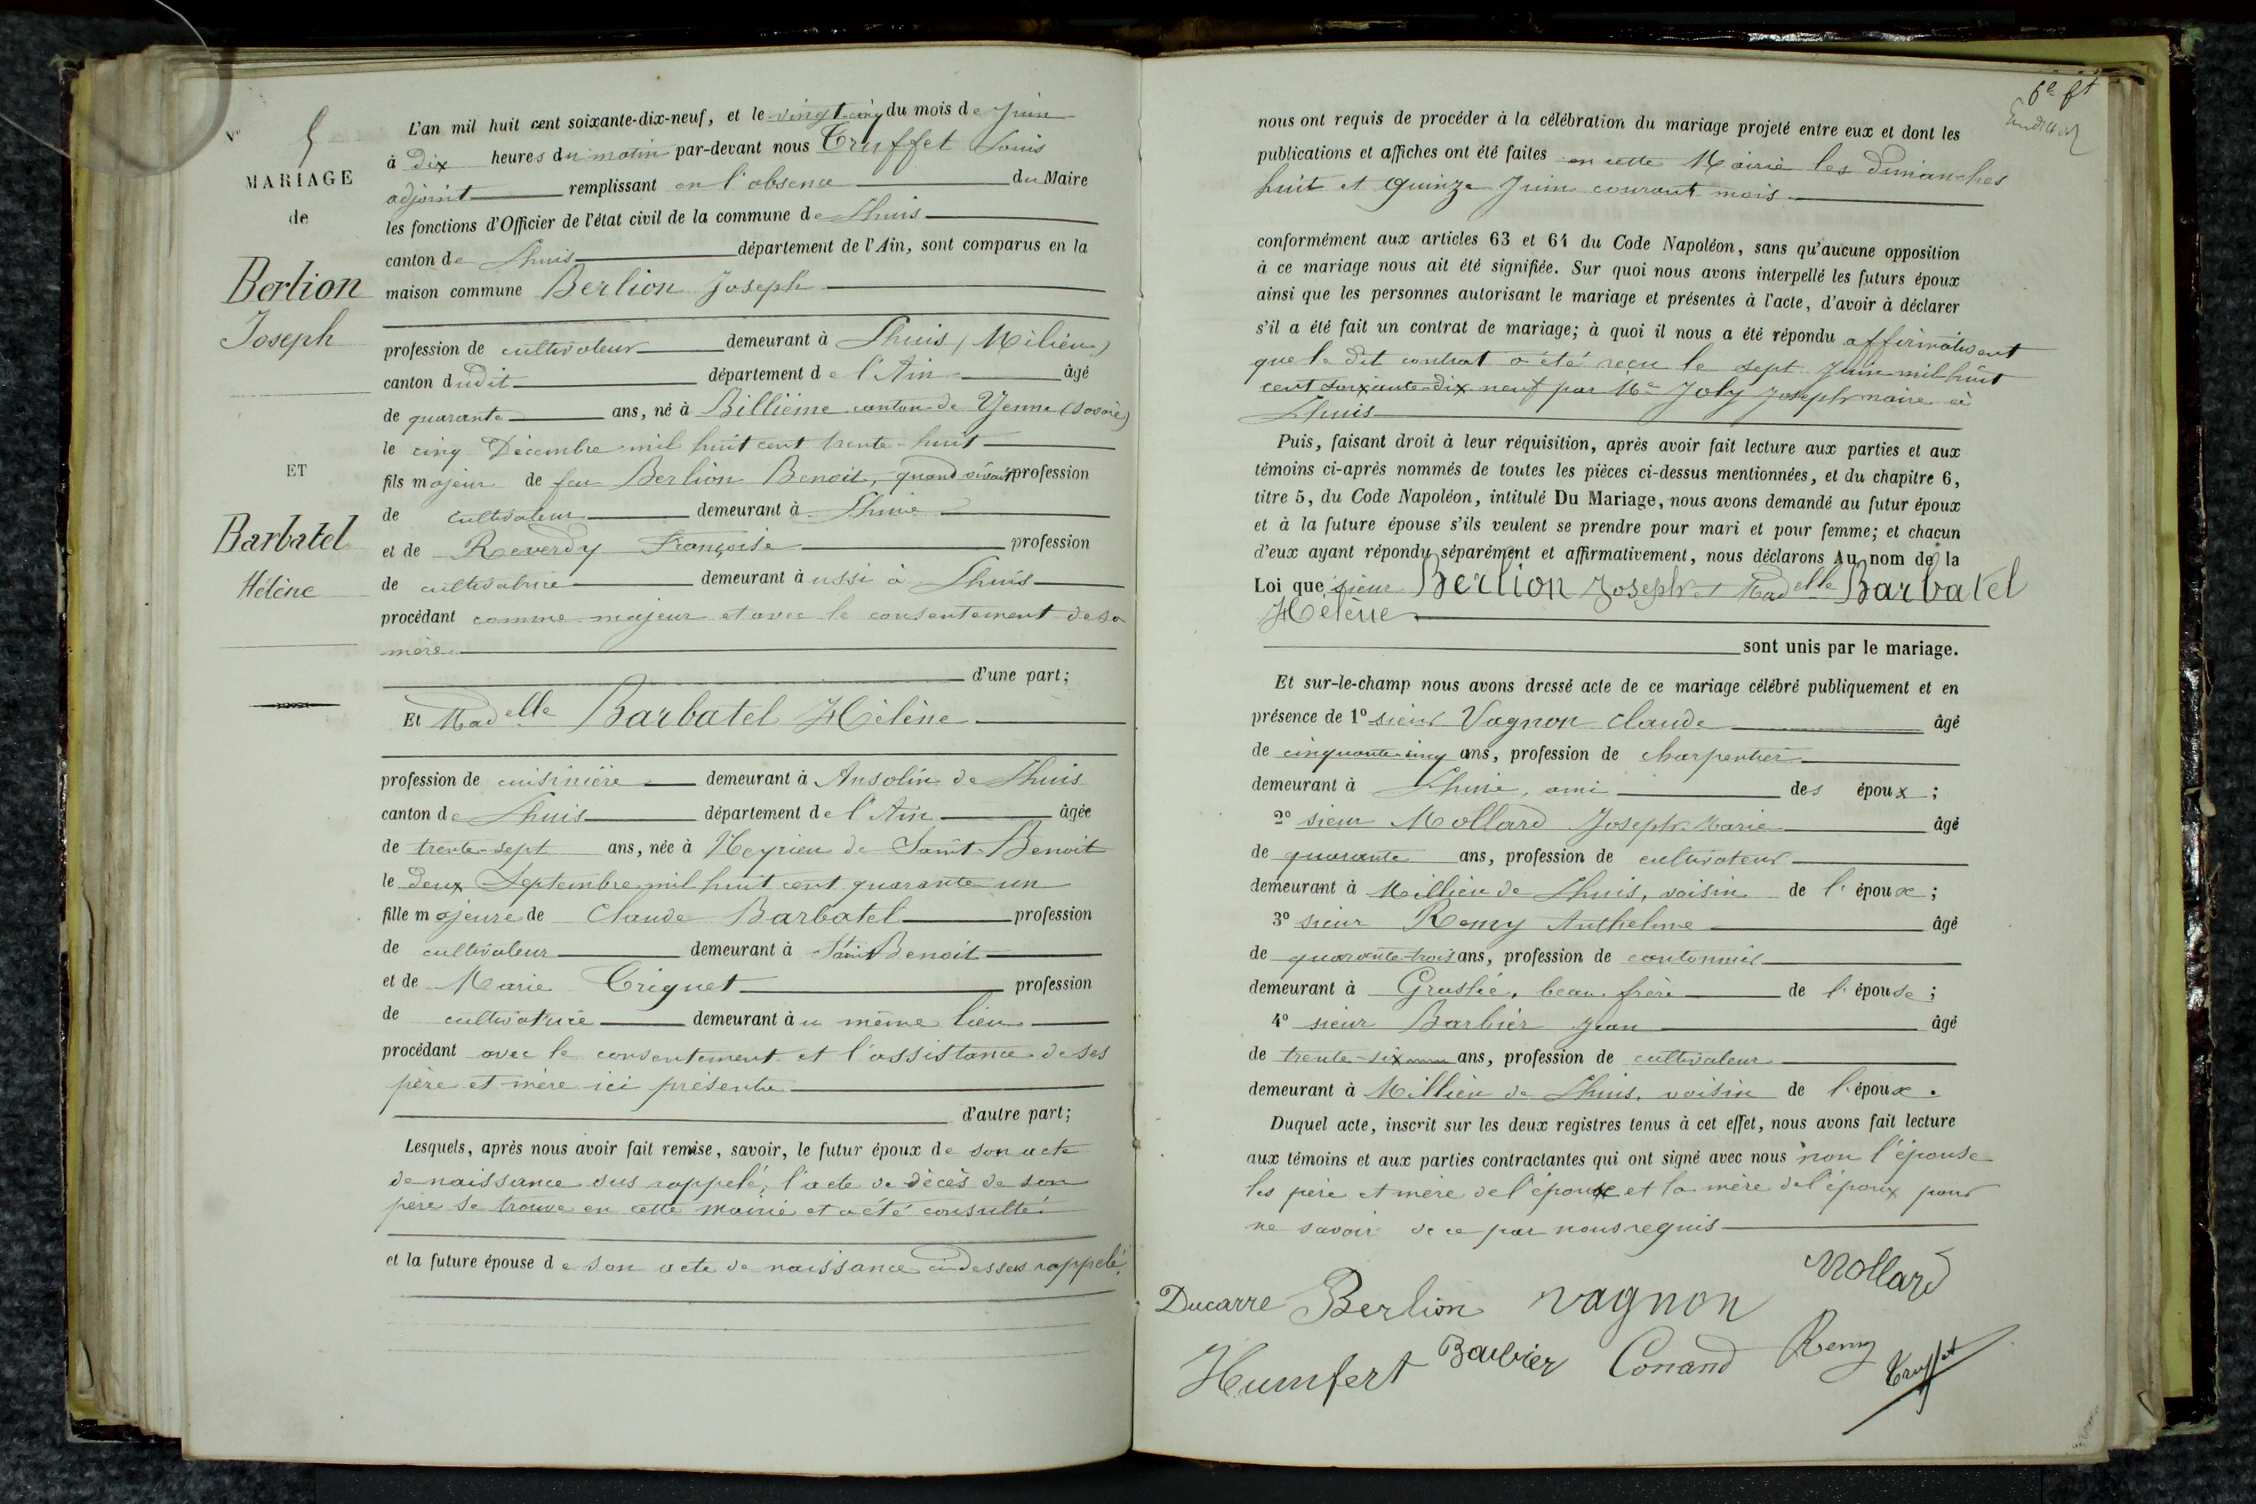 N° 5
MARIAGE
de
Berlion
Joseph
ET
Barbatel
Hélène
L'an mil huit cent soixante-dix-neuf, et le vingt cinq du mois de Juin
à dix heures du matin par-devant nous Truffet Louis
adjoint remplissant en l'absence du Maire
les fonctions d'Officier de l'état civil de la commune de Lhuis
canton de Lhuis département de l'Ain, sont comparus en la
maison commune Berlion Joseph
profession de cultivateur demeurant à Lhuis (Milieu)
canton dudit département de l'Ain âgé
de quarante ans, né à Billième canton de Yenne (Savoie)
le cinq Décembre mil huit cent trente-huit
fils majeur de feu Berlion Benoit, quand vivait profession
de cultivateur demeurant à Lhuis
et de Reverdy Françoise profession
de cultivatrice demeurant aussi à Lhuis
procédant comme majeur et avec le consentement de sa
mère
d'une part;
Et Madelle Barbatel Hélène
profession de cuisinière demeurant à Ansolin de Lhuis
canton de Lhuis département de l'Ain âgée
de trente-sept ans, née à Heyrieu de Saint-Benoit
le deux Septembre mil huit cent quarante un
fille majeure de Claude Barbatel profession
de cultivateur demeurant à Saint Benoit
et de Marie Triguet profession
de cultivatrice demeurant au même lieu
procédant avec le consentement et l'assistance de ses
père et mère ici présents
d'autre part;
Lesquels, après nous avoir fait remise, savoir, le futur époux de son acte
de naissance sus rappelé, l'acte de décès de son
père se trouve en cette mairie et a été consulté
et la future épouse de son acte de naissance ci dessus rappelé.
6e ft
nous ont requis de procéder à la célébration du mariage projeté entre eux et dont les
publications et affiches ont été faites en cette Mairie les dimanches
huit et quinze Juin courant mois
conformément aux articles 63 et 64 du Code Napoléon, sans qu'aucune opposition
à ce mariage nous ait été signifiée. Sur quoi nous avons interpellé les futurs époux
ainsi que les personnes autorisant le mariage et présentes à l'acte, d'avoir à déclarer
s'il a été fait un contrat de mariage; à quoi il nous a été répondu affirmativent
que le dit contrat a été reçu le sept Juin mil huit
cent soixante-dix neuf par Me Joly Joseph naire à
Lhuis
Puis, faisant droit à leur réquisition, après avoir fait lecture aux parties et aux
témoins ci-après nommés de toutes les pièces ci-dessus mentionnées, et du chapitre 6,
titre 5, du Code Napoléon, intitulé Du Mariage, nous avons demandé au futur époux
et à la future épouse s'ils veulent se prendre pour mari et pour femme; et chacun
d'eux ayant répondu séparément et affirmativement, nous déclarons Au nom de la
Loi que sieur Berlion Joseph et Madelle Barbatel
Hélène
sont unis par le mariage.
Et sur-le-champ nous avons dressé acte de ce mariage célébré publiquement et en
présence de 1° sieur Vagnon Claude âgé
de cinquante-cinq ans, profession de charpentier
demeurant à Lhuis, ami des époux;
2° sieur Mollard Joseph Marie âgé
de quarante ans, profession de cultivateur
demeurant à Millieu de Lhuis, voisin de l'époux;
3° sieur Remy Anthelme âgé
de quarante-trois ans, profession de cantonnier
demeurant à Groslée, beau-frère de l'épouse;
4° sieur Barbier Jean âgé
de trente-six ans, profession de cultivateur
demeurant à Millieu de Lhuis, voisin de l'époux.
Duquel acte, inscrit sur les deux registres tenus à cet effet, nous avons fait lecture
aux témoins et aux parties contractantes qui ont signé avec nous non l'épouse
les père et mère de l'épouse et la mère de l'époux pour
ne savoir de ce par nous requis
Ducarre Berlion Vagnon Mollard
Humfert Barbier Conand Remy Truffet